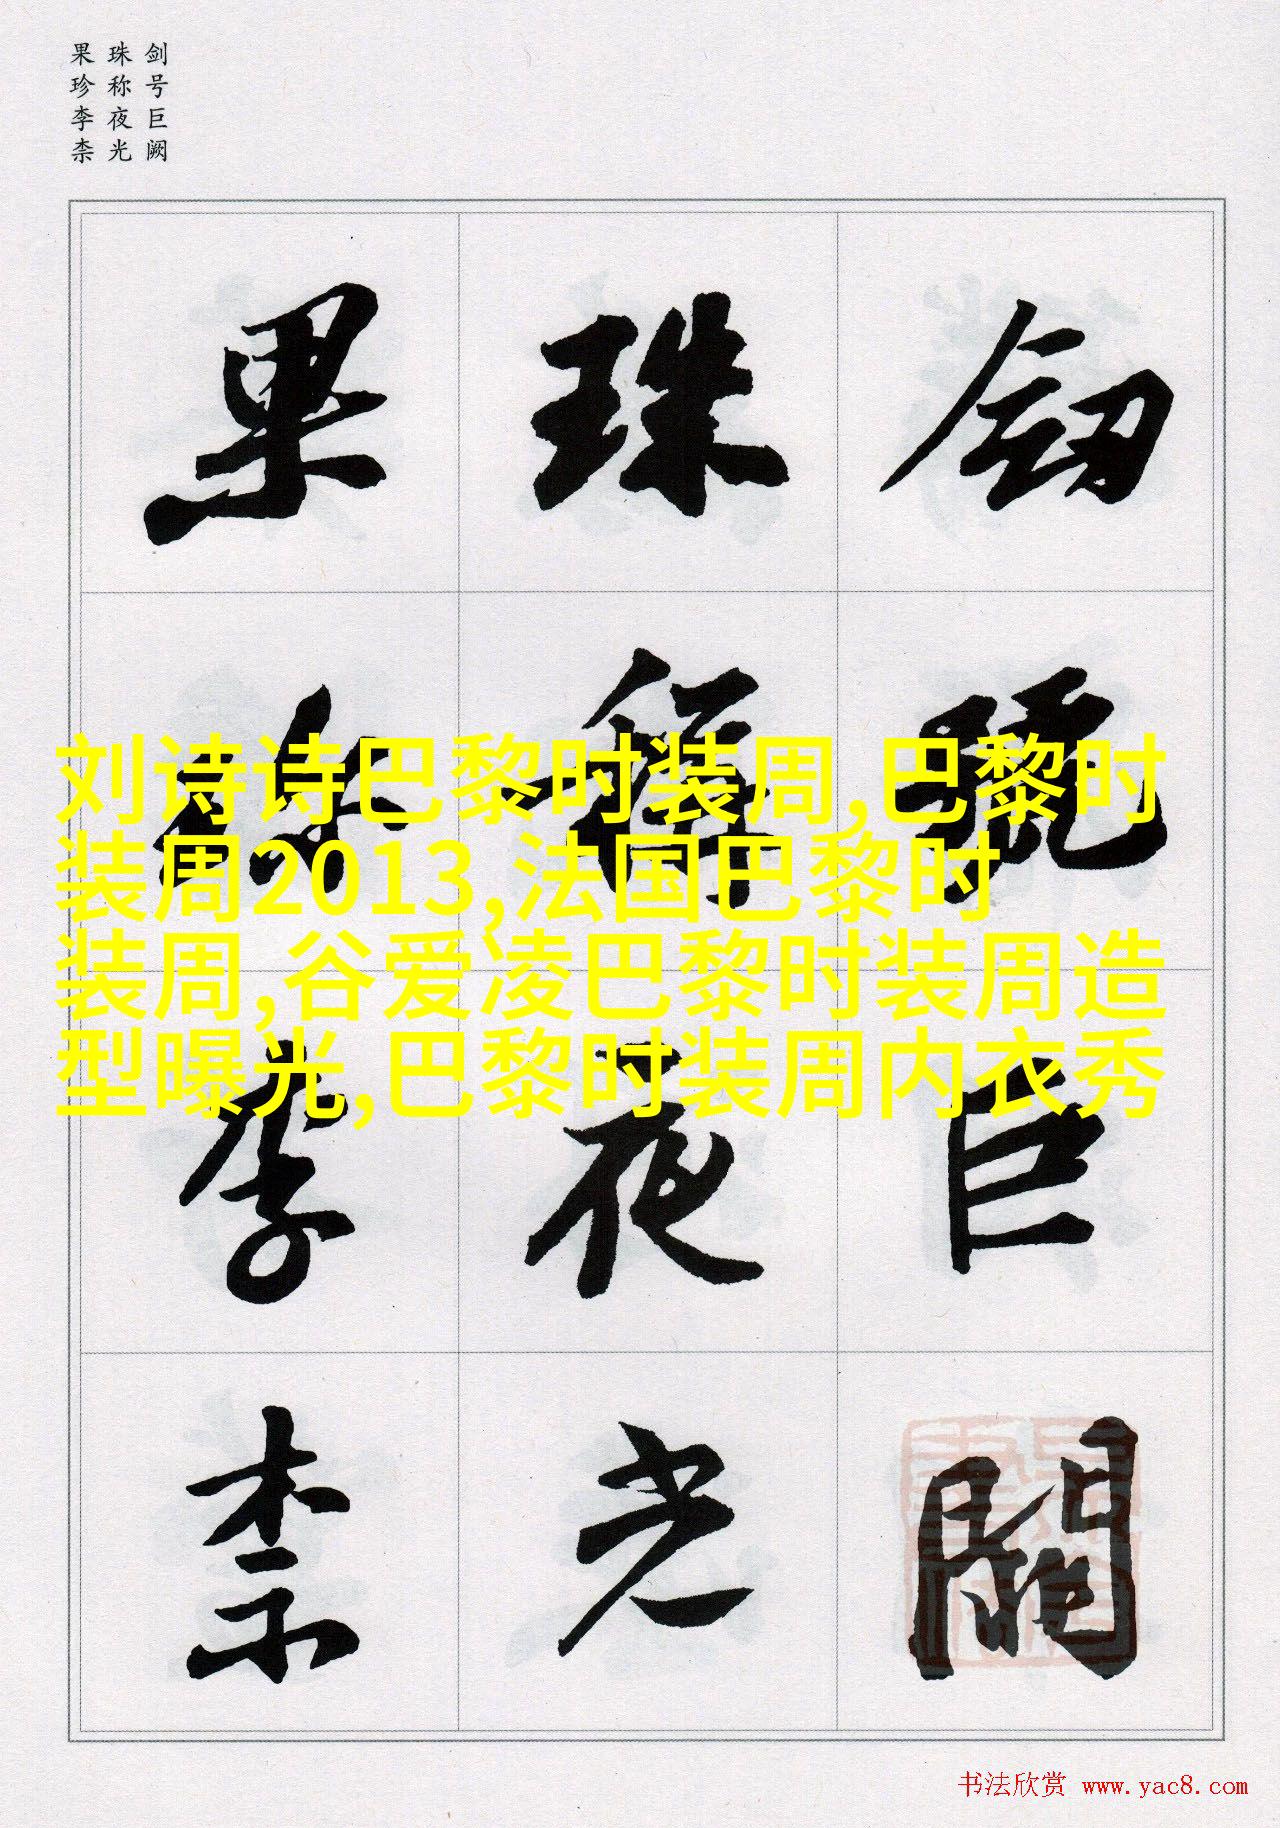 剑号巨阙
珠称夜光
果珍李柰
釼號巨闕
珠稱夜光
果珍李柰
刘诗诗巴黎时装周,巴黎时
装周2013,法国巴黎时
装周,谷爱凌巴黎时装周造
型曝光,巴黎时装周内衣秀
书法欣赏 www.yac8.com